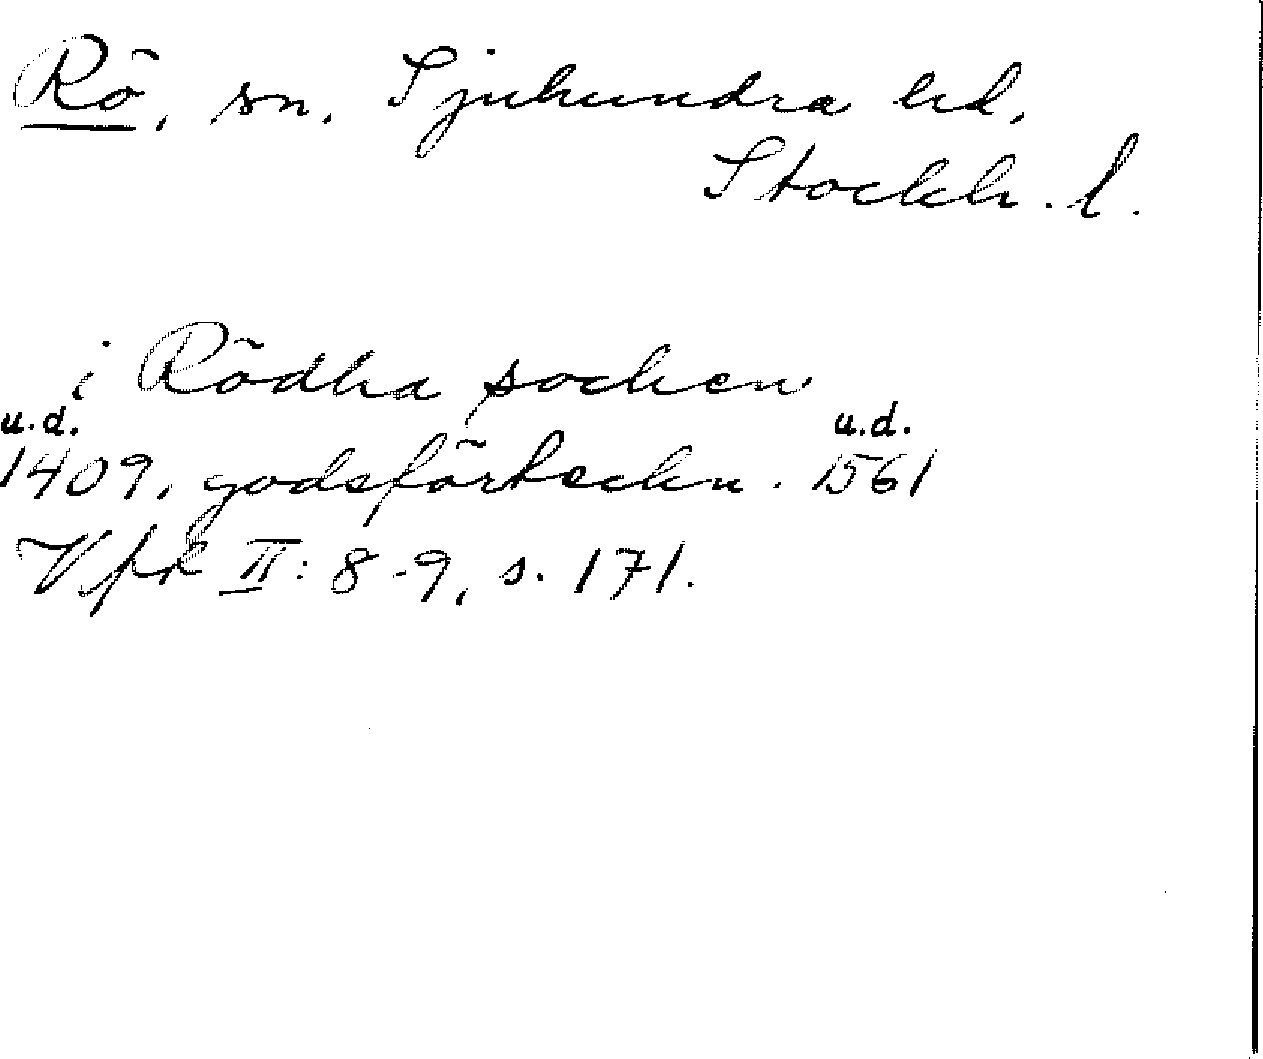 Rö, sn. Sjuhundra hd,
Stockh. l.
i Rödha socken
u.d. u.d.
1409, godsförteckn. 1561
Vfr II: 8-9, s. 171.